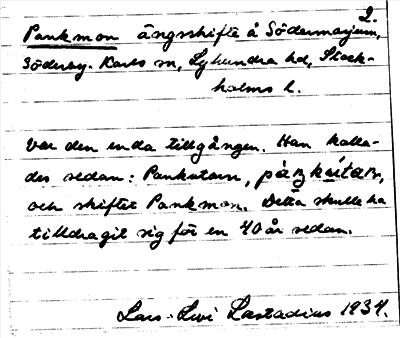 2.
Pankmon ängsskifte å Södermarjum,
Söderby-Karls sn, Lyhundra hd, Stock-
holms l.
Var den enda tillgången. Han kalla-
des sedan: Pankatarn,
och skiftet Pankmon. Detta skulle ha
tilldragit sig för en 40 år sedan.
Lars-Levi Læstadius 1934.